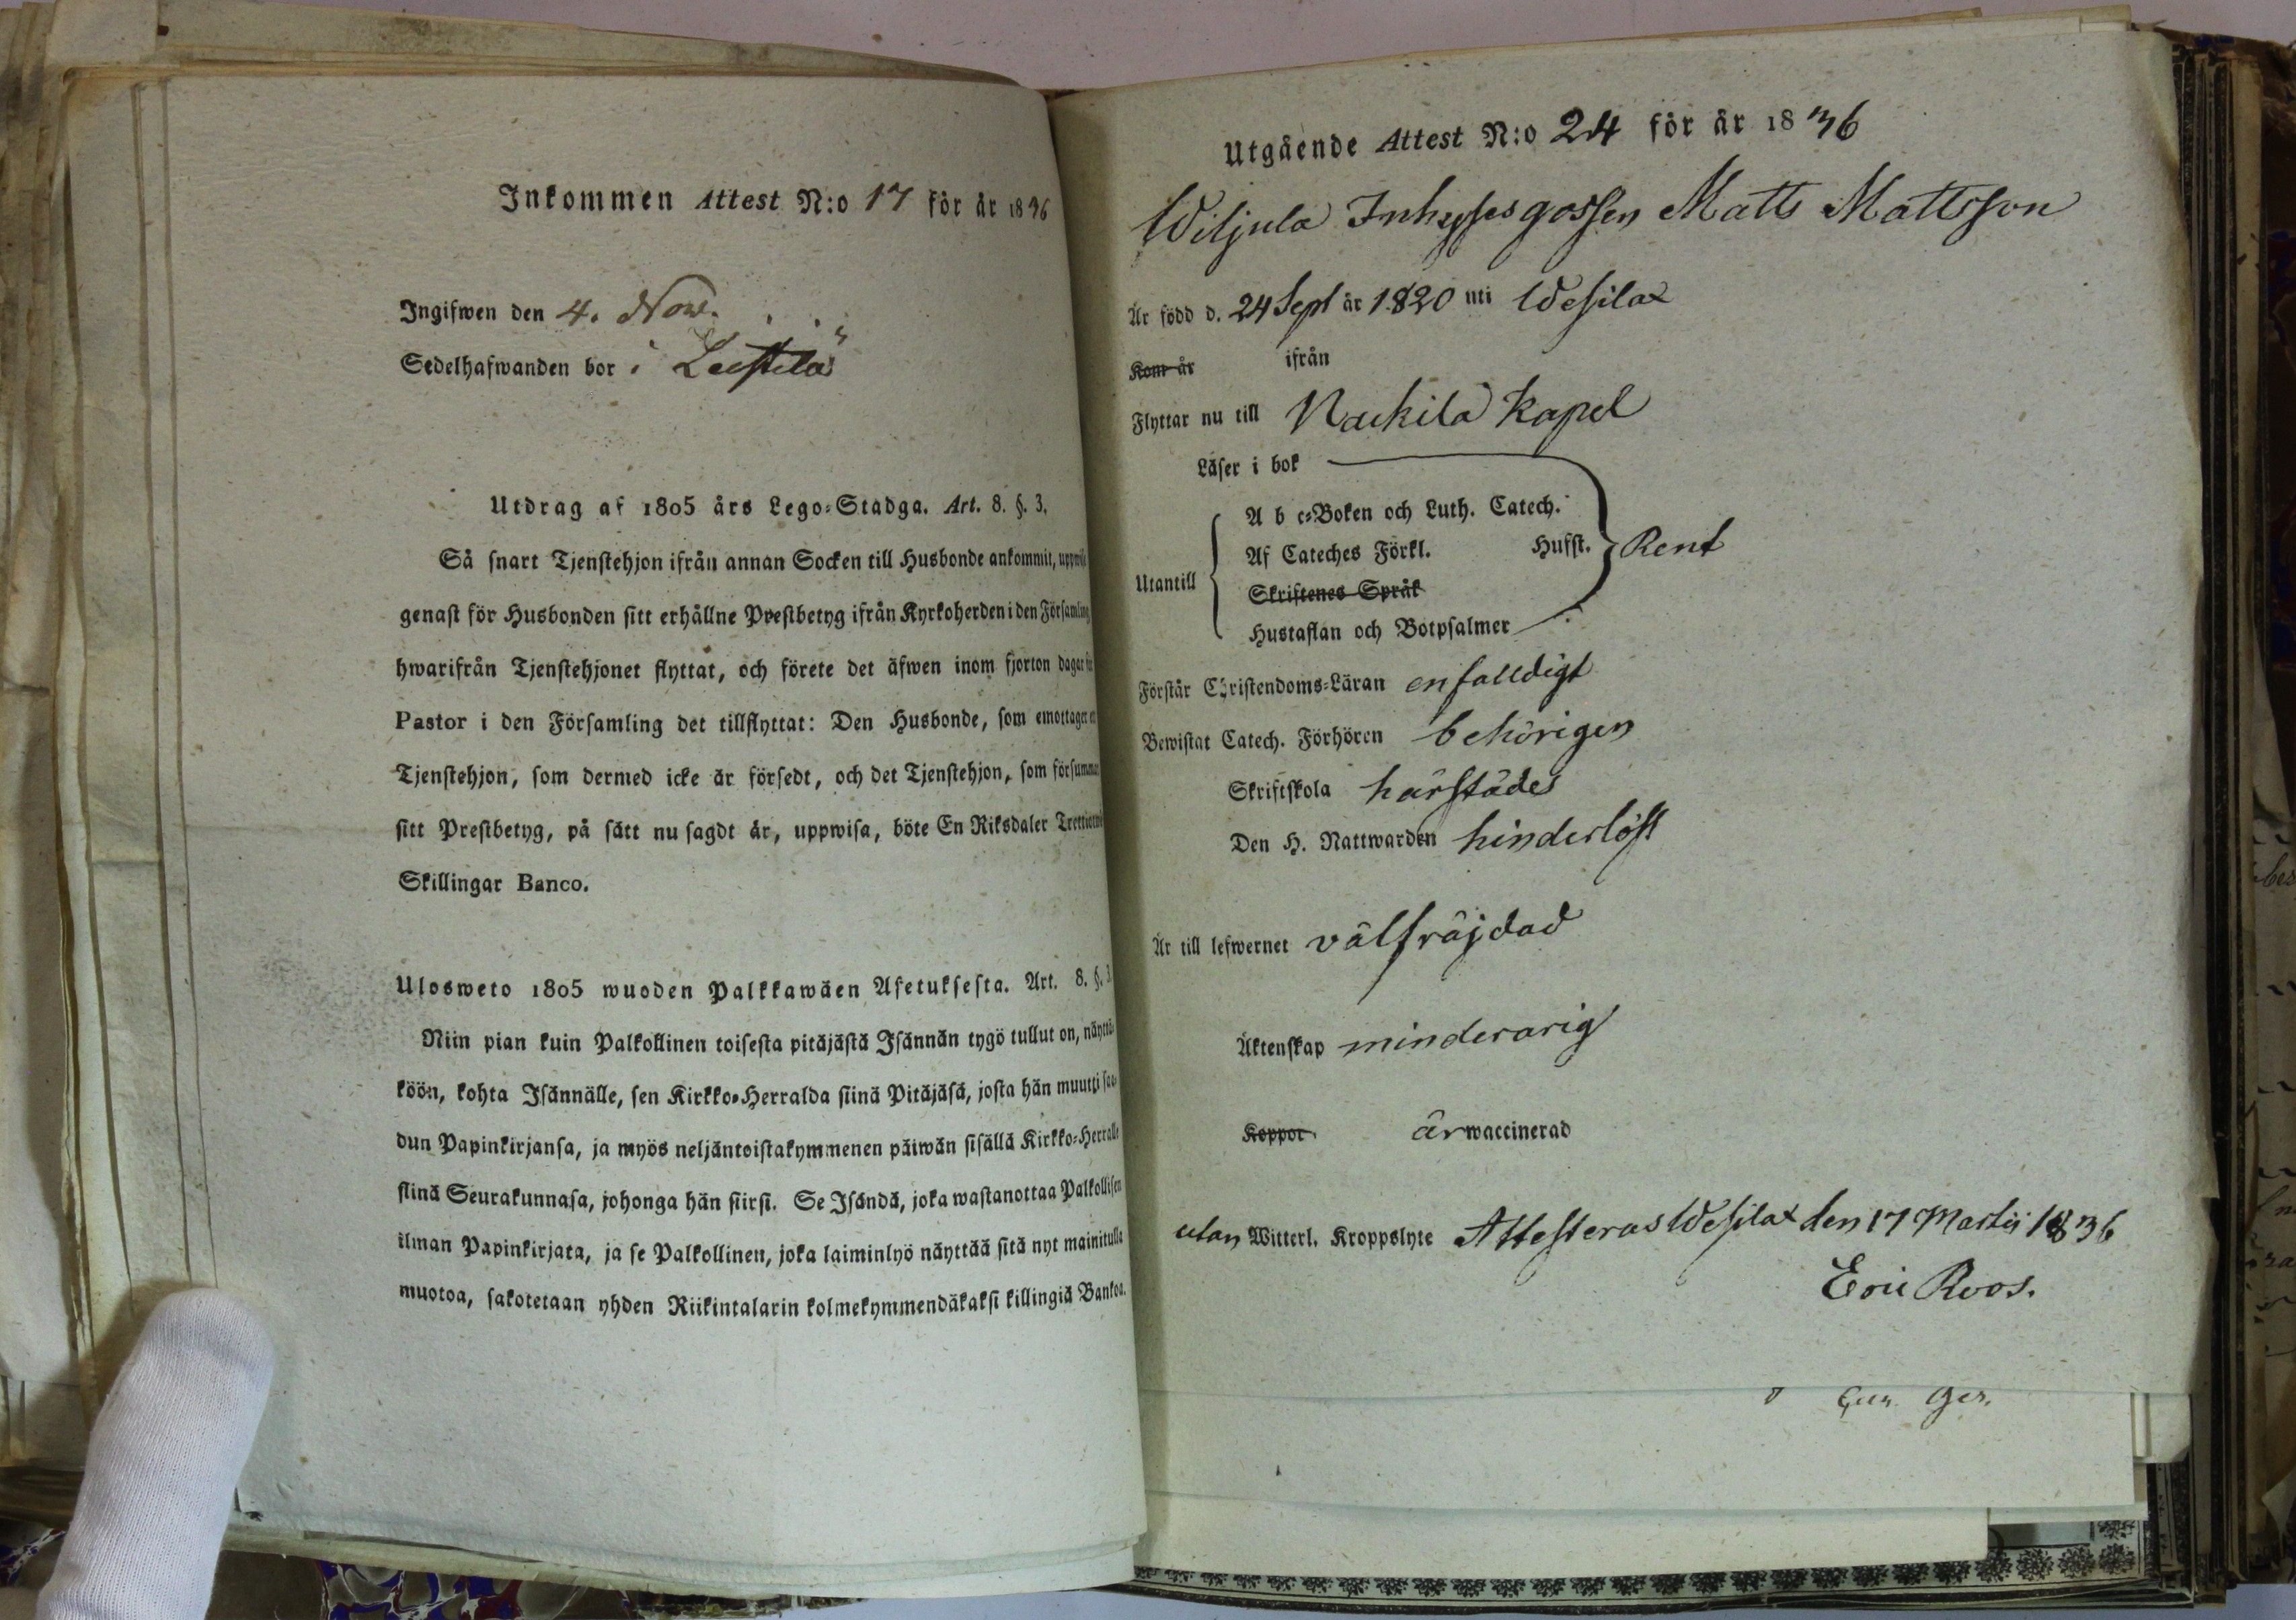 Inkommen Attest N:o 17 för år 1836
Ingifwen den 4. Nov.
Sedelhafwanden bor i Leistilä
Utdrag af 1805 års Lego-Stadga. Art. 8. §. 3.
Så snart Tjenstehjon ifrån annan Socken till Husbonde ankommit, uppwise
genast för Husbonden sitt erhållne Prestbetyg ifrån Kyrkoherden i den Församling
hwarifrån Tjenstehjonet flyttat, och förete det äfwen inom fjorton dagar för
Pastor i den Församling det tillflyttat: Den Husbonde, som emottager et
Tjenstehjon, som dermed icke är försedt, och det Tjenstehjon, som försummar
sitt Prestbetyg, på sätt nu sagdt är, uppwisa, böte En Riksdaler Trettiotwå
Skillingar Banco.
Ulosweto 1805 wuoden Palkkawäen Asetuksesta. Art. 8. §. 3
Niin pian kuin Palkollinen toisesta pitäjästä Isännän tygö tullut on, näyttä-
köön, kohta Isännälle, sen Kirkko-Herralda siinä Pitäjäsä, josta hän muutti saa-
dun Papinkirjansa, ja myös neljäntoistakymmenen päiwän sisällä Kirkko-Herralle
siinä Seurakunnasa, johonga hän siirsi. Se Isändä, joka wastanottaa Palkollisen
ilman Papinkirjata, ja se Palkollinen, joka laiminlyö näyttää sitä nyt mainitulla
muotoa, sakotetaan yhden Riikintalarin kolmekymmendäkaksi killingiä Bankoa.
Utgående Attest N:o 24 för år 1836
Wiljula Inhyses gossen Matts Mattsson
Är född d. 24 Sept år 1820 uti Wesilax
Kom år ifrån
Flyttar nu till Nackila Kapel
Läser i bok
A b c-Boken och Luth. Catech.
Af Cateches Förkl. Hufst. Rent
Utantill
Skriftenes Språk
Hustaflan och Botpsalmer
Förstår Christendoms-Läran enfalldigt
Bewistat Catech. Förhören behörigen
Skriftskola härstädes
Den H. Nattwarden hinderlöst
Är till lefwernet välfräjdad
Äktenskap minderarig
Koppor är waccinerad
utan Witterl. Kroppslyte Attesteras Wesilax den 17 Martii 1836
Eric Roos.